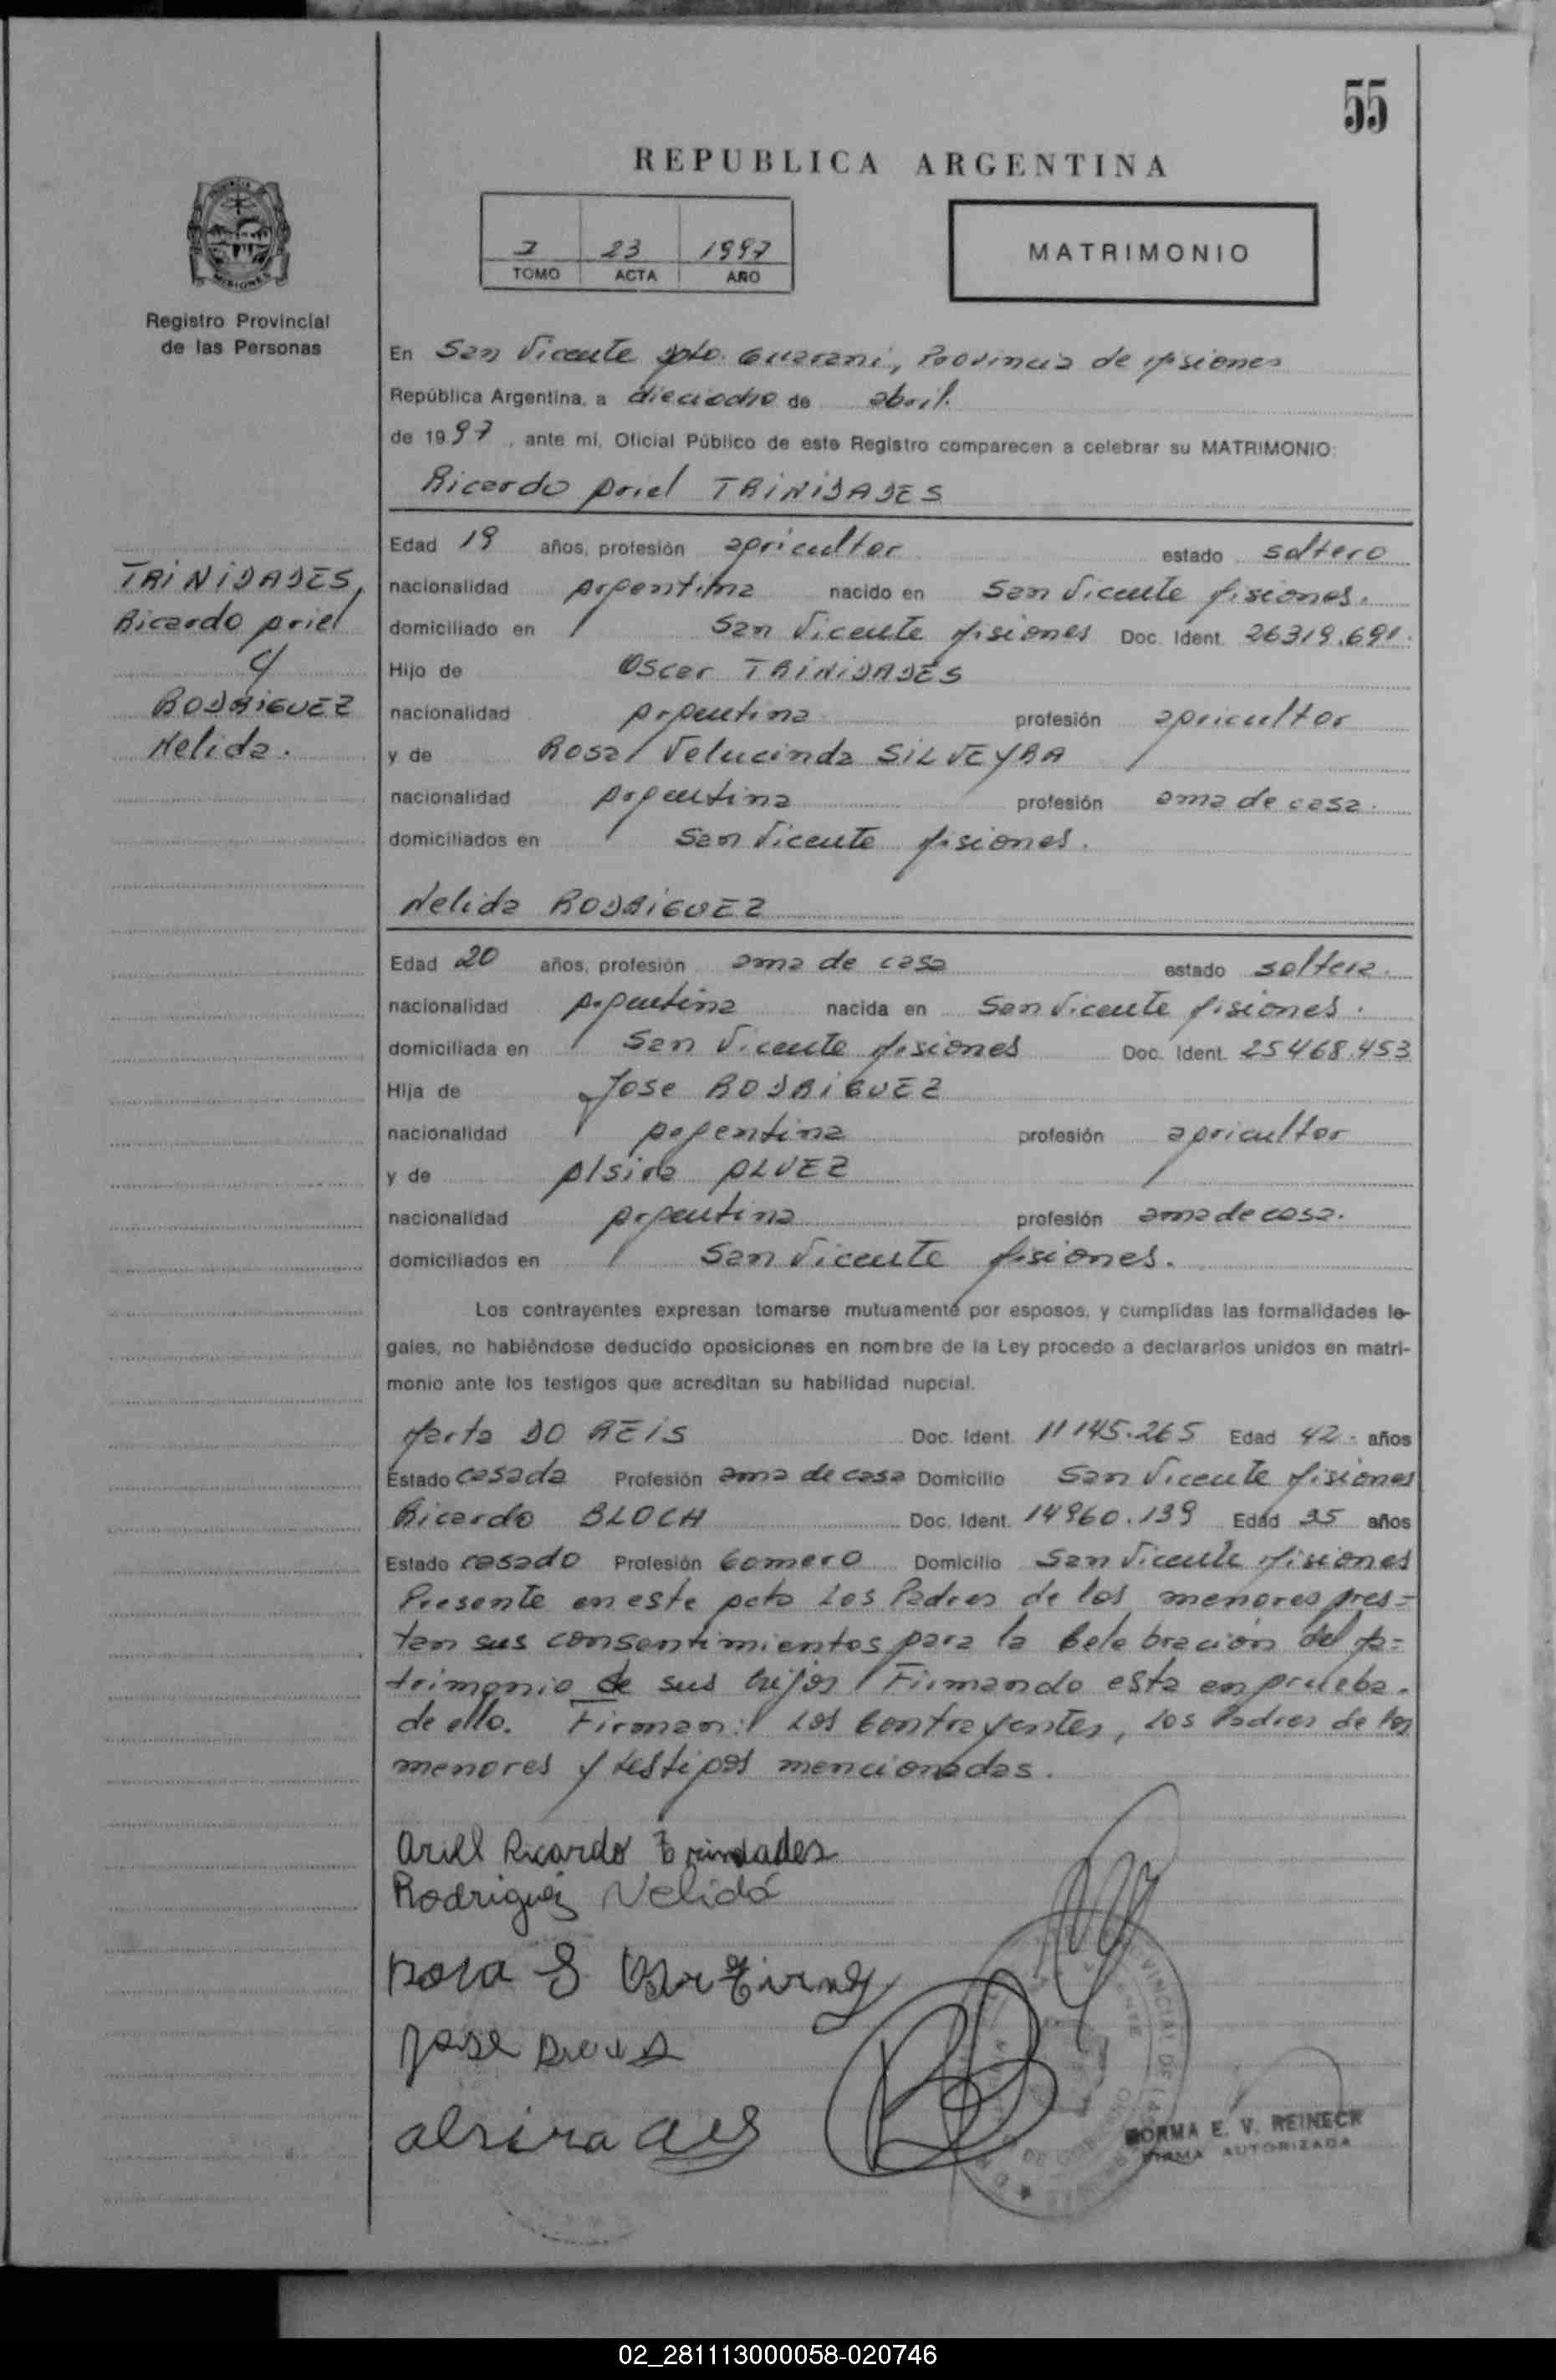 55
REPUBLICA ARGENTINA
23 1997
TOMO ACTA AÑO
MATRIMONIO
MISIONES
Registro Provincial
de las Personas
En San Vicente Dpto. Guarani, Provincia de Misiones
República Argentina, a dieciocho de abril.
de 1997, ante mí, Oficial Público de este Registro comparecen a celebrar su MATRIMONIO:
Ricardo Ariel TRINIDADES
TRINIDADES,
Ricardo Ariel
c/
RODRIGUEZ
Nelida.
Edad 19 años, profesión agricultor estado soltero
nacionalidad Argentina nacido en San Vicente Misiones.
domiciliado en San Vicente Misiones Doc. Ident. 26319.691.
Hijo de Oscar TRINIDADES
nacionalidad Argentina profesión agricultor
y de Rosa Velucinda SILVEYRA
nacionalidad Argentina profesión ama de casa.
domiciliados en San Vicente Misiones.
Nelida RODRIGUEZ
Edad 20 años, profesión ama de casa estado soltera.
nacionalidad Argentina nacida en San Vicente Misiones.
domiciliada en San Vicente Misiones Doc. Ident. 25468.453
Hija de Jose RODRIGUEZ
nacionalidad Argentina profesión agricultor
y de Alsira ALVEZ
nacionalidad Argentina profesión ama de casa.
domiciliados en San Vicente Misiones.
Los contrayentes expresan tomarse mutuamente por esposos, y cumplidas las formalidades le-
gales, no habiéndose deducido oposiciones en nombre de la Ley procedo a declararlos unidos en matri-
monio ante los testigos que acreditan su habilidad nupcial.
Marta DO REIS Doc. Ident. 11145.265 Edad 42- años
Estado casada Profesión ama de casa Domicilio San Vicente Misiones
Ricardo BLOCH Doc. Ident. 14960.139 Edad 35 años
Estado casado Profesión Gomero Domicilio San Vicente Misiones
Presente en este Acto Los Padres de los menores pres=
tan sus consentimientos para la Celebración del Ma=
trimonio de sus hijos Firmando esta en prueba.
de ello. Firman: Los Contrayentes, los Padres de los
menores y testigos mencionados.
Ariel Ricardo Trinidades
Rodriguez Nelida
Rosa S
Jose
alsira
NORMA E. V. REINECK
FIRMA AUTORIZADA
02_281113000058-020746